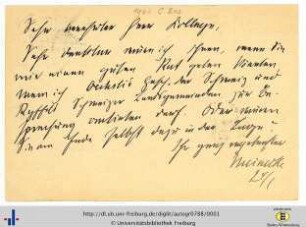 Sehr verehrter Herr Kollege.
Sehr dankbar wäre ich Ihnen, wenn Sie
mir einen guten Rat geben könnten
wem ich Oechslis Gesch. der Schweiz und
Ryffels Schweizer Landsgemeinden zur Be-
sprechung anbieten darf. Oder wären
Sie am Ende selbst dazu in der Lage?
Ihr ganz ergebenster
Meinecke
http://dl.ub.uni-freiburg.de/diglit/autogr0768/0001
© Universitätsbibliothek Freiburg